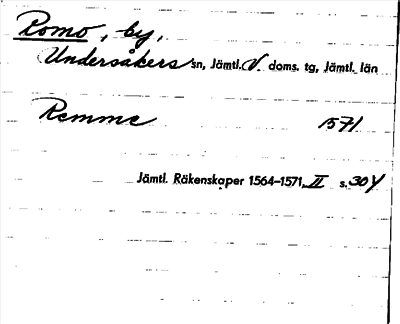 Romo, by,
Undersåkers sn, Jämtl. V. doms. tg, Jämtl. län
Remme 1571
Jämtl. Räkenskaper 1564-1571, II s. 304